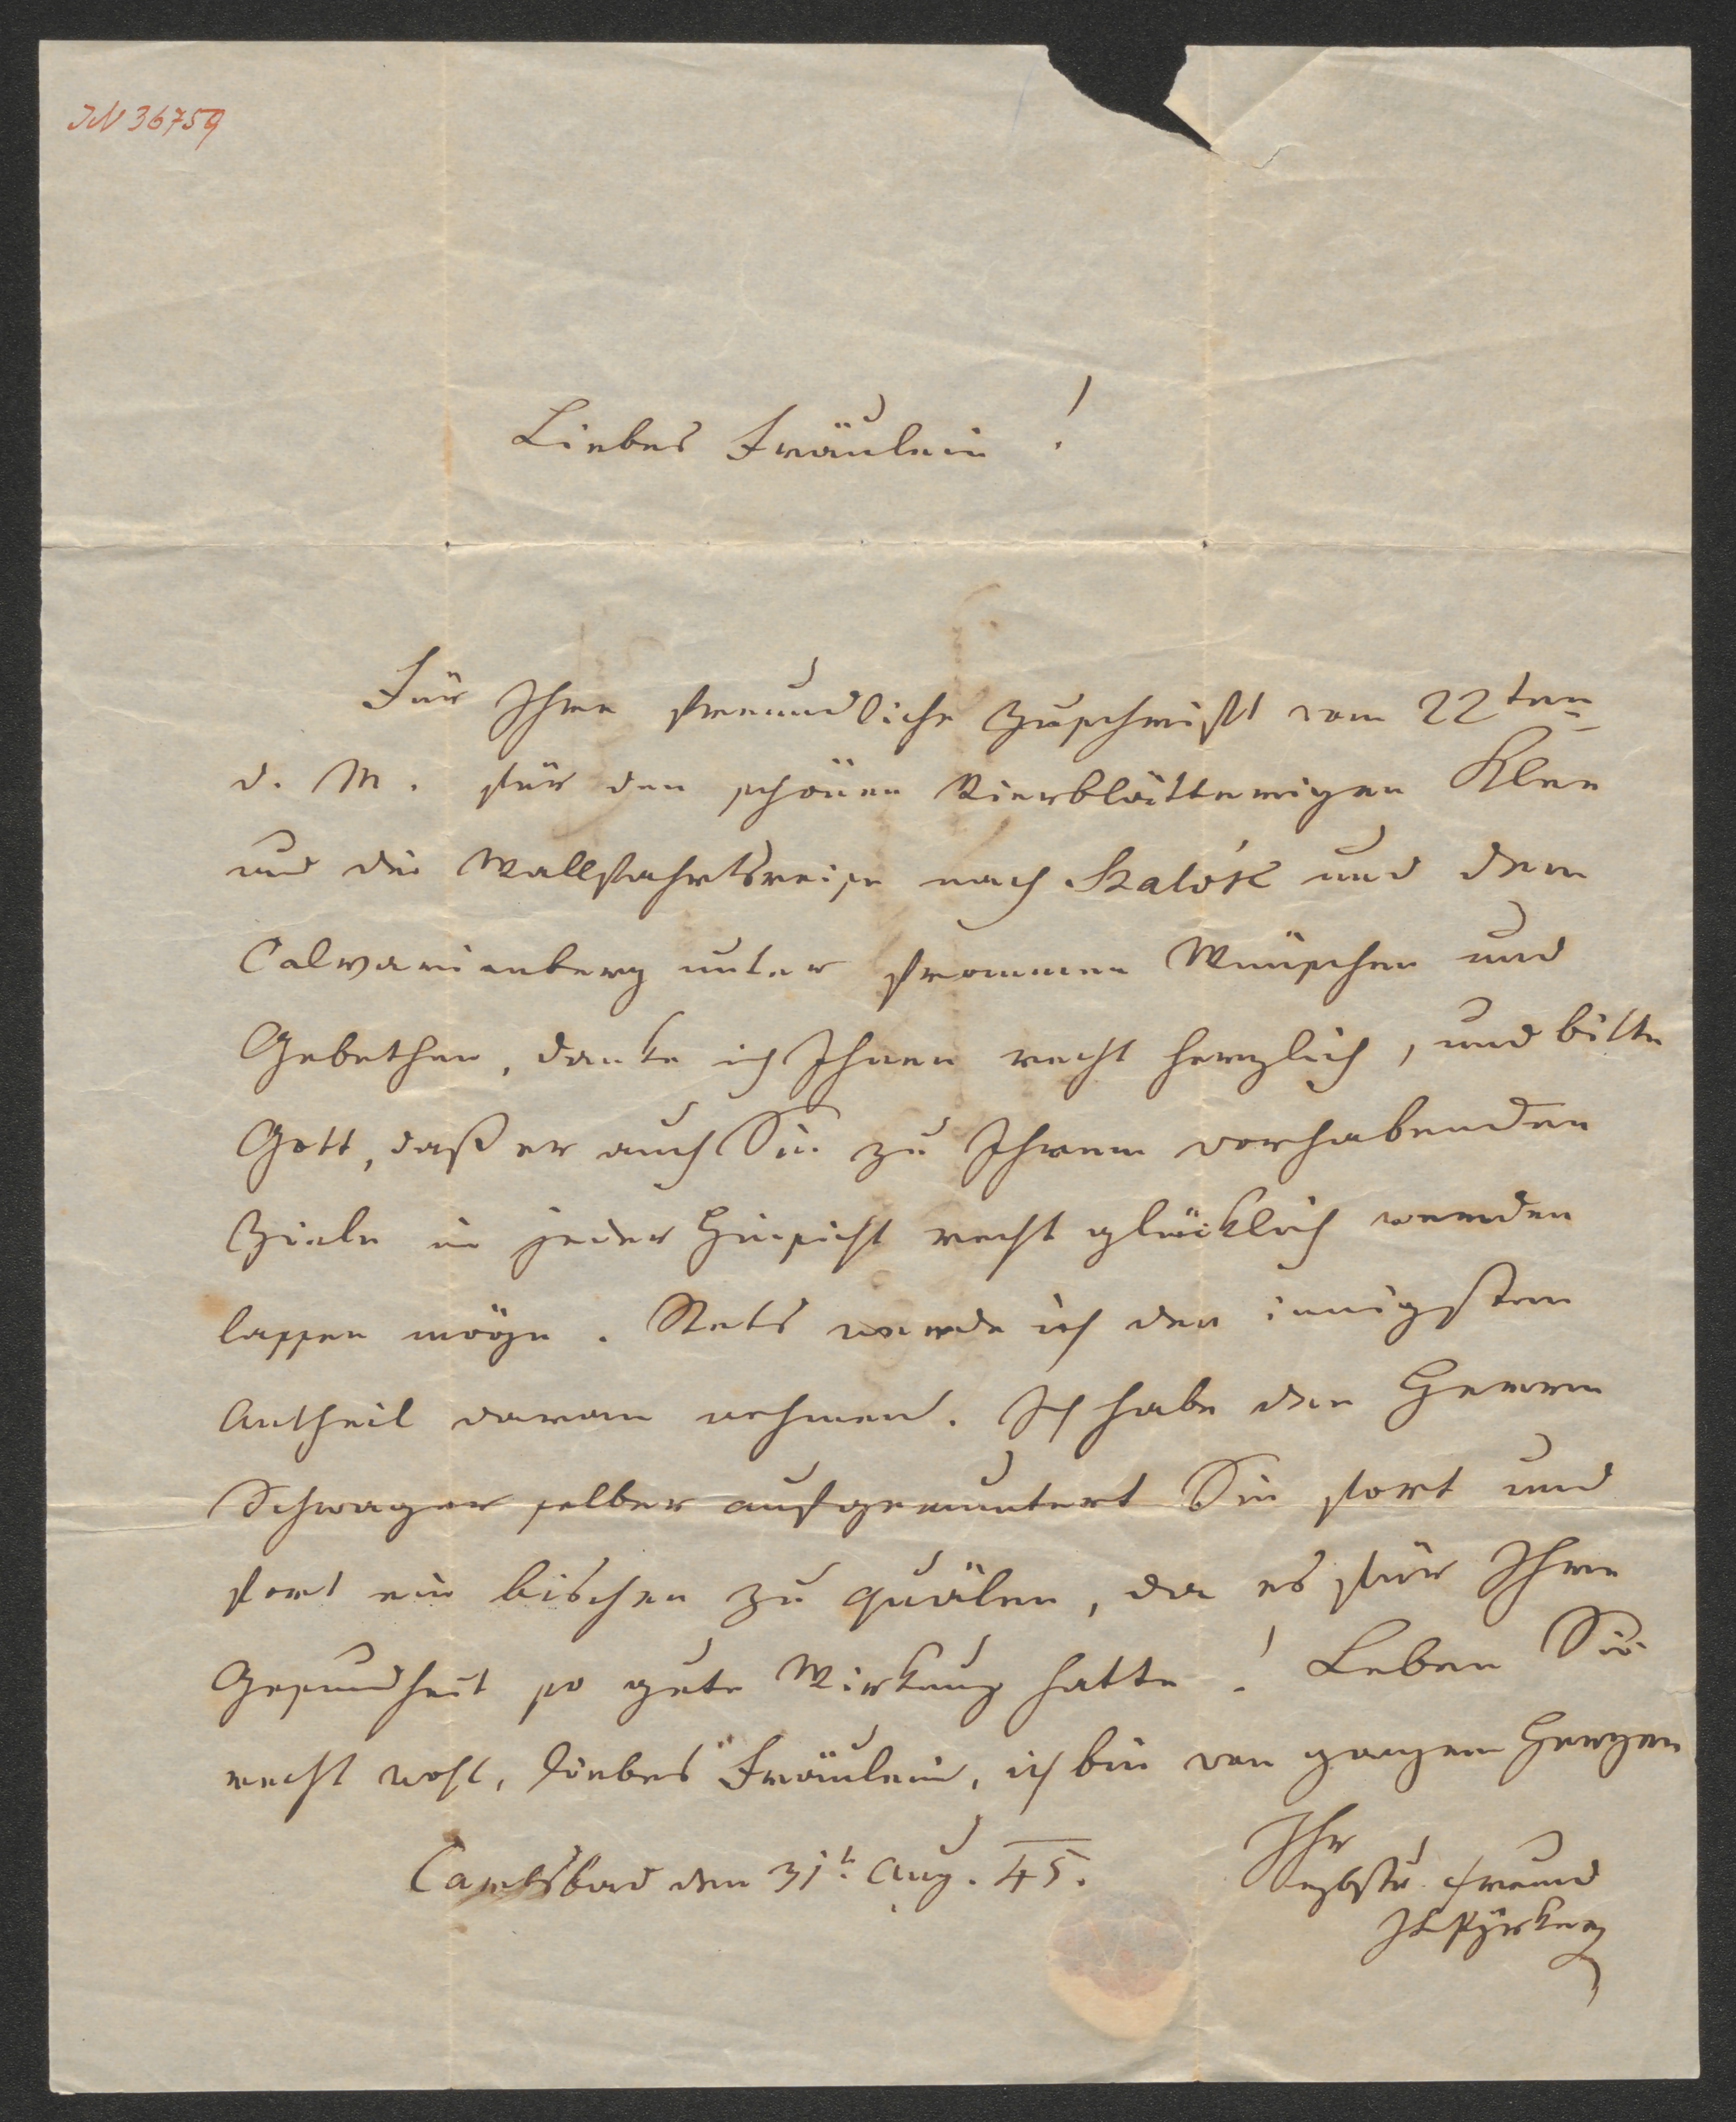 IN 36759
Liebes Fräulein!
Für Ihre freundliche Zuschrift vom 22ten
d. M. für den schönen Vierblätterigen Klee
und die Wallfahrtsreise nach Szalók und dem
Calvarienberg unter frommen Wünschen und
Gebethen, danke ich Ihnen recht herzlich, und bitte
Gott, daß er auch Sie zu Ihrem vorhabenden
Ziele in jeder Hinsicht recht glücklich werden
lassen möge. Stets werde ich den innigsten
Antheil daran nehmen. Ich habe den Herrn
Schwager selber aufgemuntert Sie fort und
fort ein bischen zu quälen, da es für Ihre
Gesundheit so gute Wirkung hatte! Leben Sie
recht wohl, liebes Fräulein, ich bin von ganzem Herzen
Ihr
Carlsbad den 31t. Aug. 45.
Freund
Pyrker